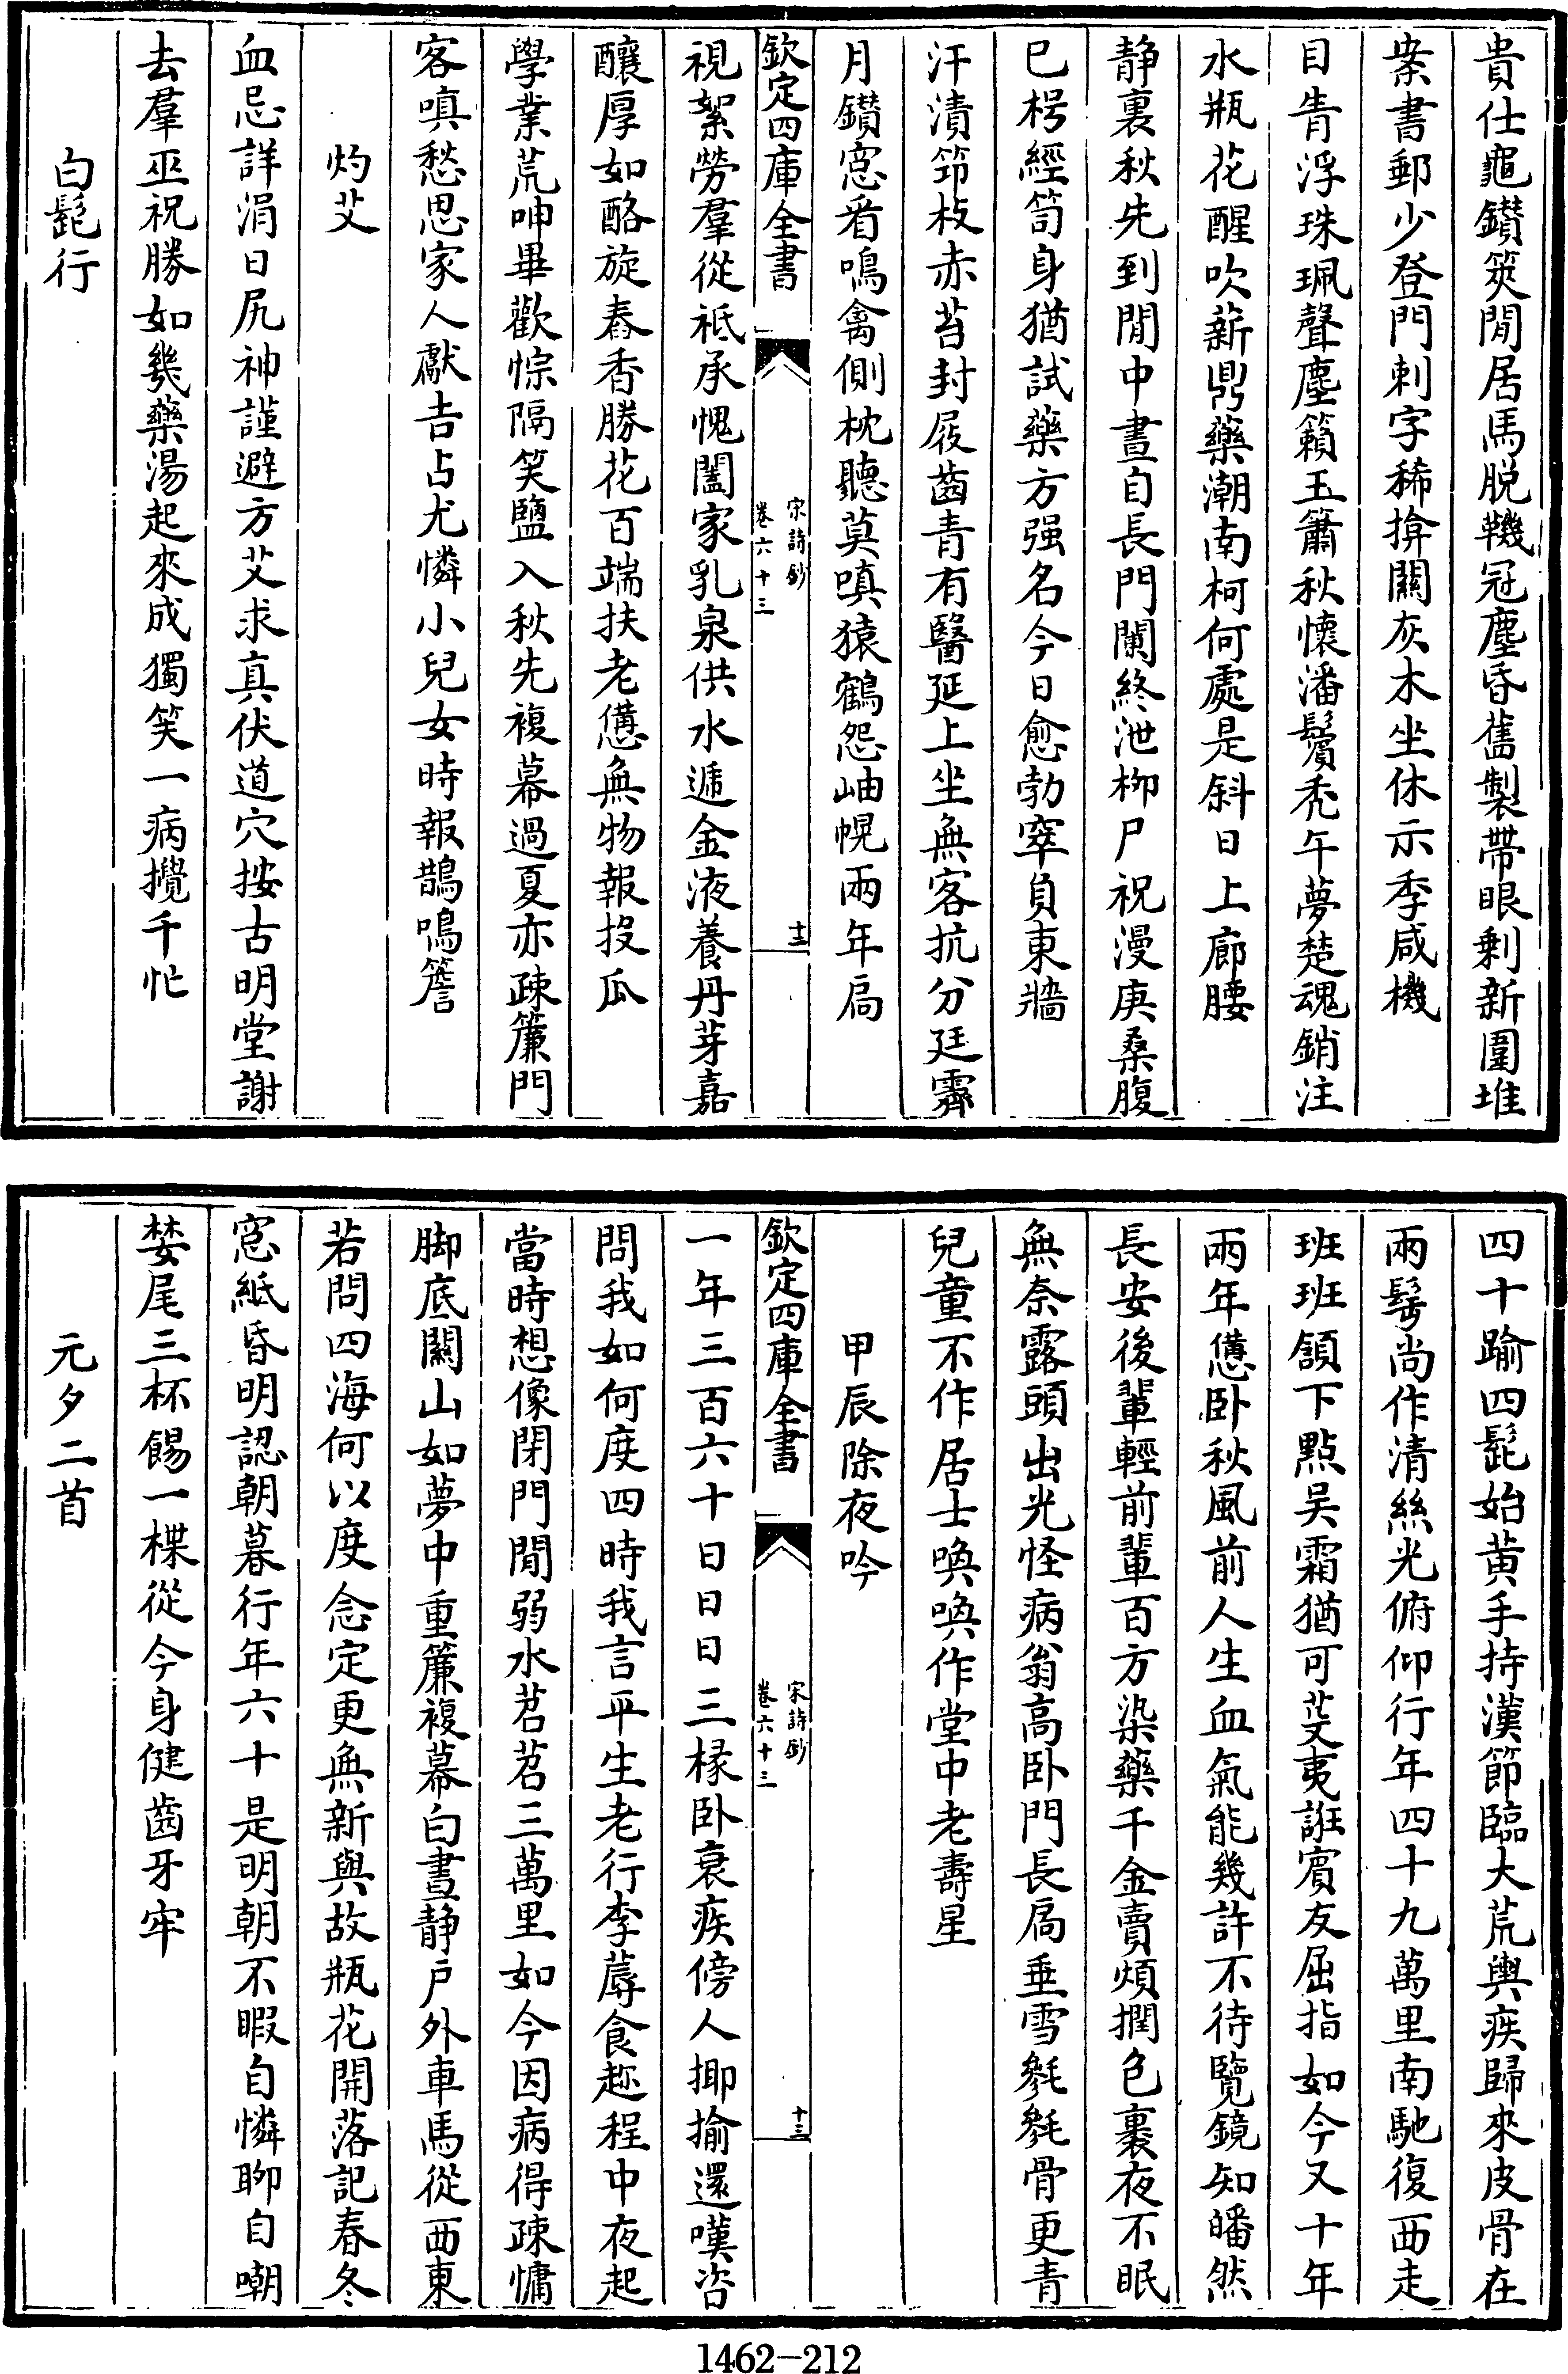 貴仕龜鑽筴閒居馬脱鞿冠塵昏舊製帶眼剩新圍堆
案書郵少登門刺字稀揜關灰木坐休示季咸機
目眚浮珠珮聲塵籟玉簫秋懷潘鬢秃午夢楚魂銷注
水瓶花醒吹薪鼎藥潮南柯何處是斜日上廊腰
静裏秋先到閒中晝自長門闌終泄柳尸祝漫庚桑腹
已枵經笥身猶試藥方强名今日愈勃窣負東牆
汗漬笻枝赤苔封屐齒青有醫延上坐無客抗分廷霽
月鑽窓看鳴禽側枕聽莫嗔猿鶴怨岫幌兩年扃
欽定四庫全書
宋詩鈔
卷六十三
十二
視絮勞羣從祗承愧闔家乳泉供水遞金液養丹芽嘉
釀厚如酪旋舂香勝花百端扶老憊無物報投瓜
學業荒呻畢歡悰隔笑鹽入秋先複幕過夏亦疎簾門
客嗔愁思家人獻吉占尤憐小兒女時報鵲鳴簷
灼艾
血忌詳涓日尻神謹避方艾求真伏道穴按古明堂謝
去羣巫祝勝如幾藥湯起來成獨笑一病攪千忙
白髭行
四十踰四髭始黄手持漢節臨大荒輿疾歸來皮骨在
兩髩尚作清絲光俯仰行年四十九萬里南馳復西走
班班頷下點吴霜猶可芟夷誑賓友屈指如今又十年
兩年憊卧秋風前人生血氣能幾許不待覽鏡知皤然
長安後輩輕前輩百方染藥千金賣煩撋色裹夜不眠
無奈露頭出光怪病翁高卧門長扃垂雪毿毿骨更青
兒童不作居士喚喚作堂中老壽星
甲辰除夜吟
欽定四庫全書
宋詩鈔
卷六十三
十三
一年三百六十日日日三椽卧衰疾傍人揶揄還嘆咨
問我如何度四時我言平生老行李蓐食趂程中夜起
當時想像閉門閒弱水苕苕三萬里如今因病得疎慵
脚底關山如夢中重簾複幕白晝静户外車馬從西東
若問四海何以度念定更無新與故瓶花開落記春冬
窓紙昏明認朝暮行年六十是明朝不暇自憐聊自嘲
婪尾三杯餳一楪從今身健齒牙牢
元夕二首
1462-212